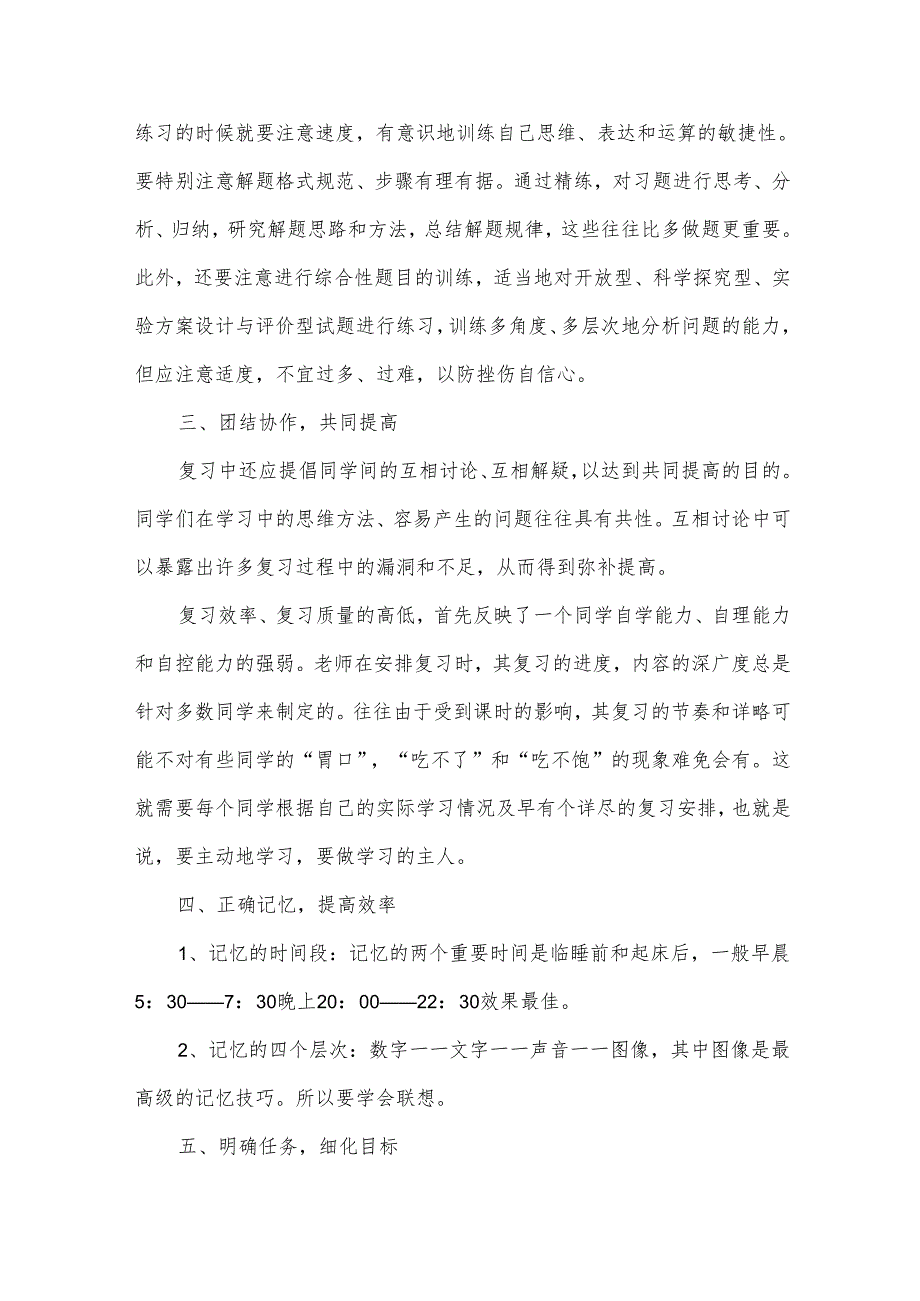 练习的时候就要注意速度，有意识地训练自己思维、表达和运算的敏捷性。
要特别注意解题格式规范、步骤有理有据。通过精练，对习题进行思考、分
析、归纳，研究解题思路和方法，总结解题规律，这些往往比多做题更重要。
此外，还要注意进行综合性题目的训练，适当地对开放型、科学探究型、实
验方案设计与评价型试题进行练习，训练多角度、多层次地分析问题的能力，
但应注意适度，不宜过多、过难，以防挫伤自信心。
三、团结协作，共同提高
复习中还应提倡同学间的互相讨论、互相解疑，以达到共同提高的目的。
同学们在学习中的思维方法、容易产生的问题往往具有共性。互相讨论中可
以暴露出许多复习过程中的漏洞和不足，从而得到弥补提高。
复习效率、复习质量的高低，首先反映了一个同学自学能力、自理能力
和自控能力的强弱。老师在安排复习时，其复习的进度，内容的深广度总是
针对多数同学来制定的。往往由于受到课时的影响，其复习的节奏和详略可
能不对有些同学的“胃口”，“吃不了”和“吃不饱”的现象难免会有。这
就需要每个同学根据自己的实际学习情况及早有个详尽的复习安排，也就是
说，要主动地学习，要做学习的主人。
四、正确记忆，提高效率
1、记忆的时间段：记忆的两个重要时间是临睡前和起床后，一般早晨
5：30——7：30晚上20：00——22：30效果最佳。
2、记忆的四个层次：数字一一文字一一声音一一图像，其中图像是最
高级的记忆技巧。所以要学会联想。
五、明确任务，细化目标